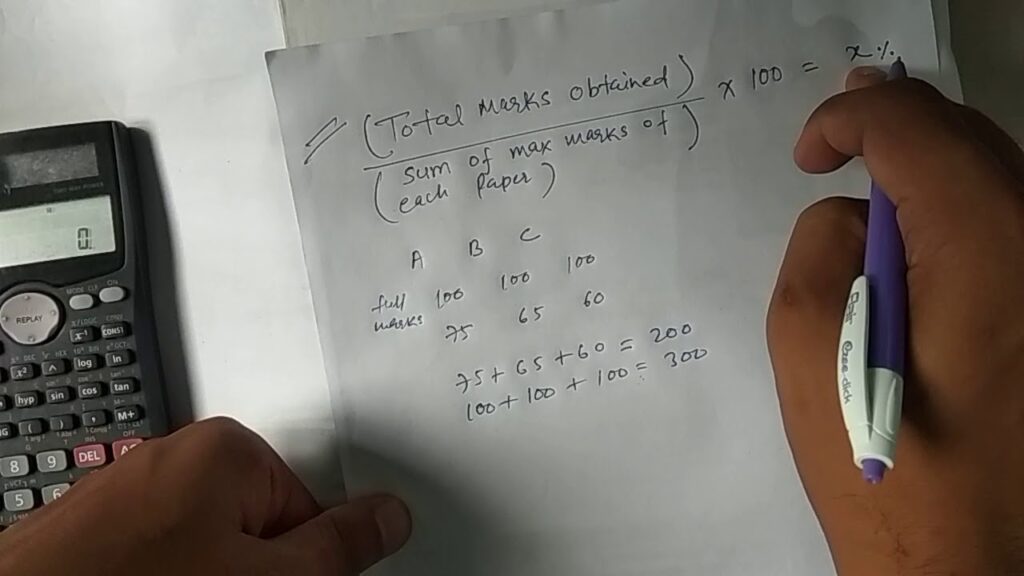 (Total Marks obtained) × 100 = x%
(sum of max marks of
each Paper)
A B C
full marks 100 100 100
75 65 60
75 + 65 + 60 = 200
100 + 100 + 100 = 300
0.
REPLAY
MODE CLR ON
CONST
log ln
hyp sin cos tan
M+
8 9 DEL AC
5 6